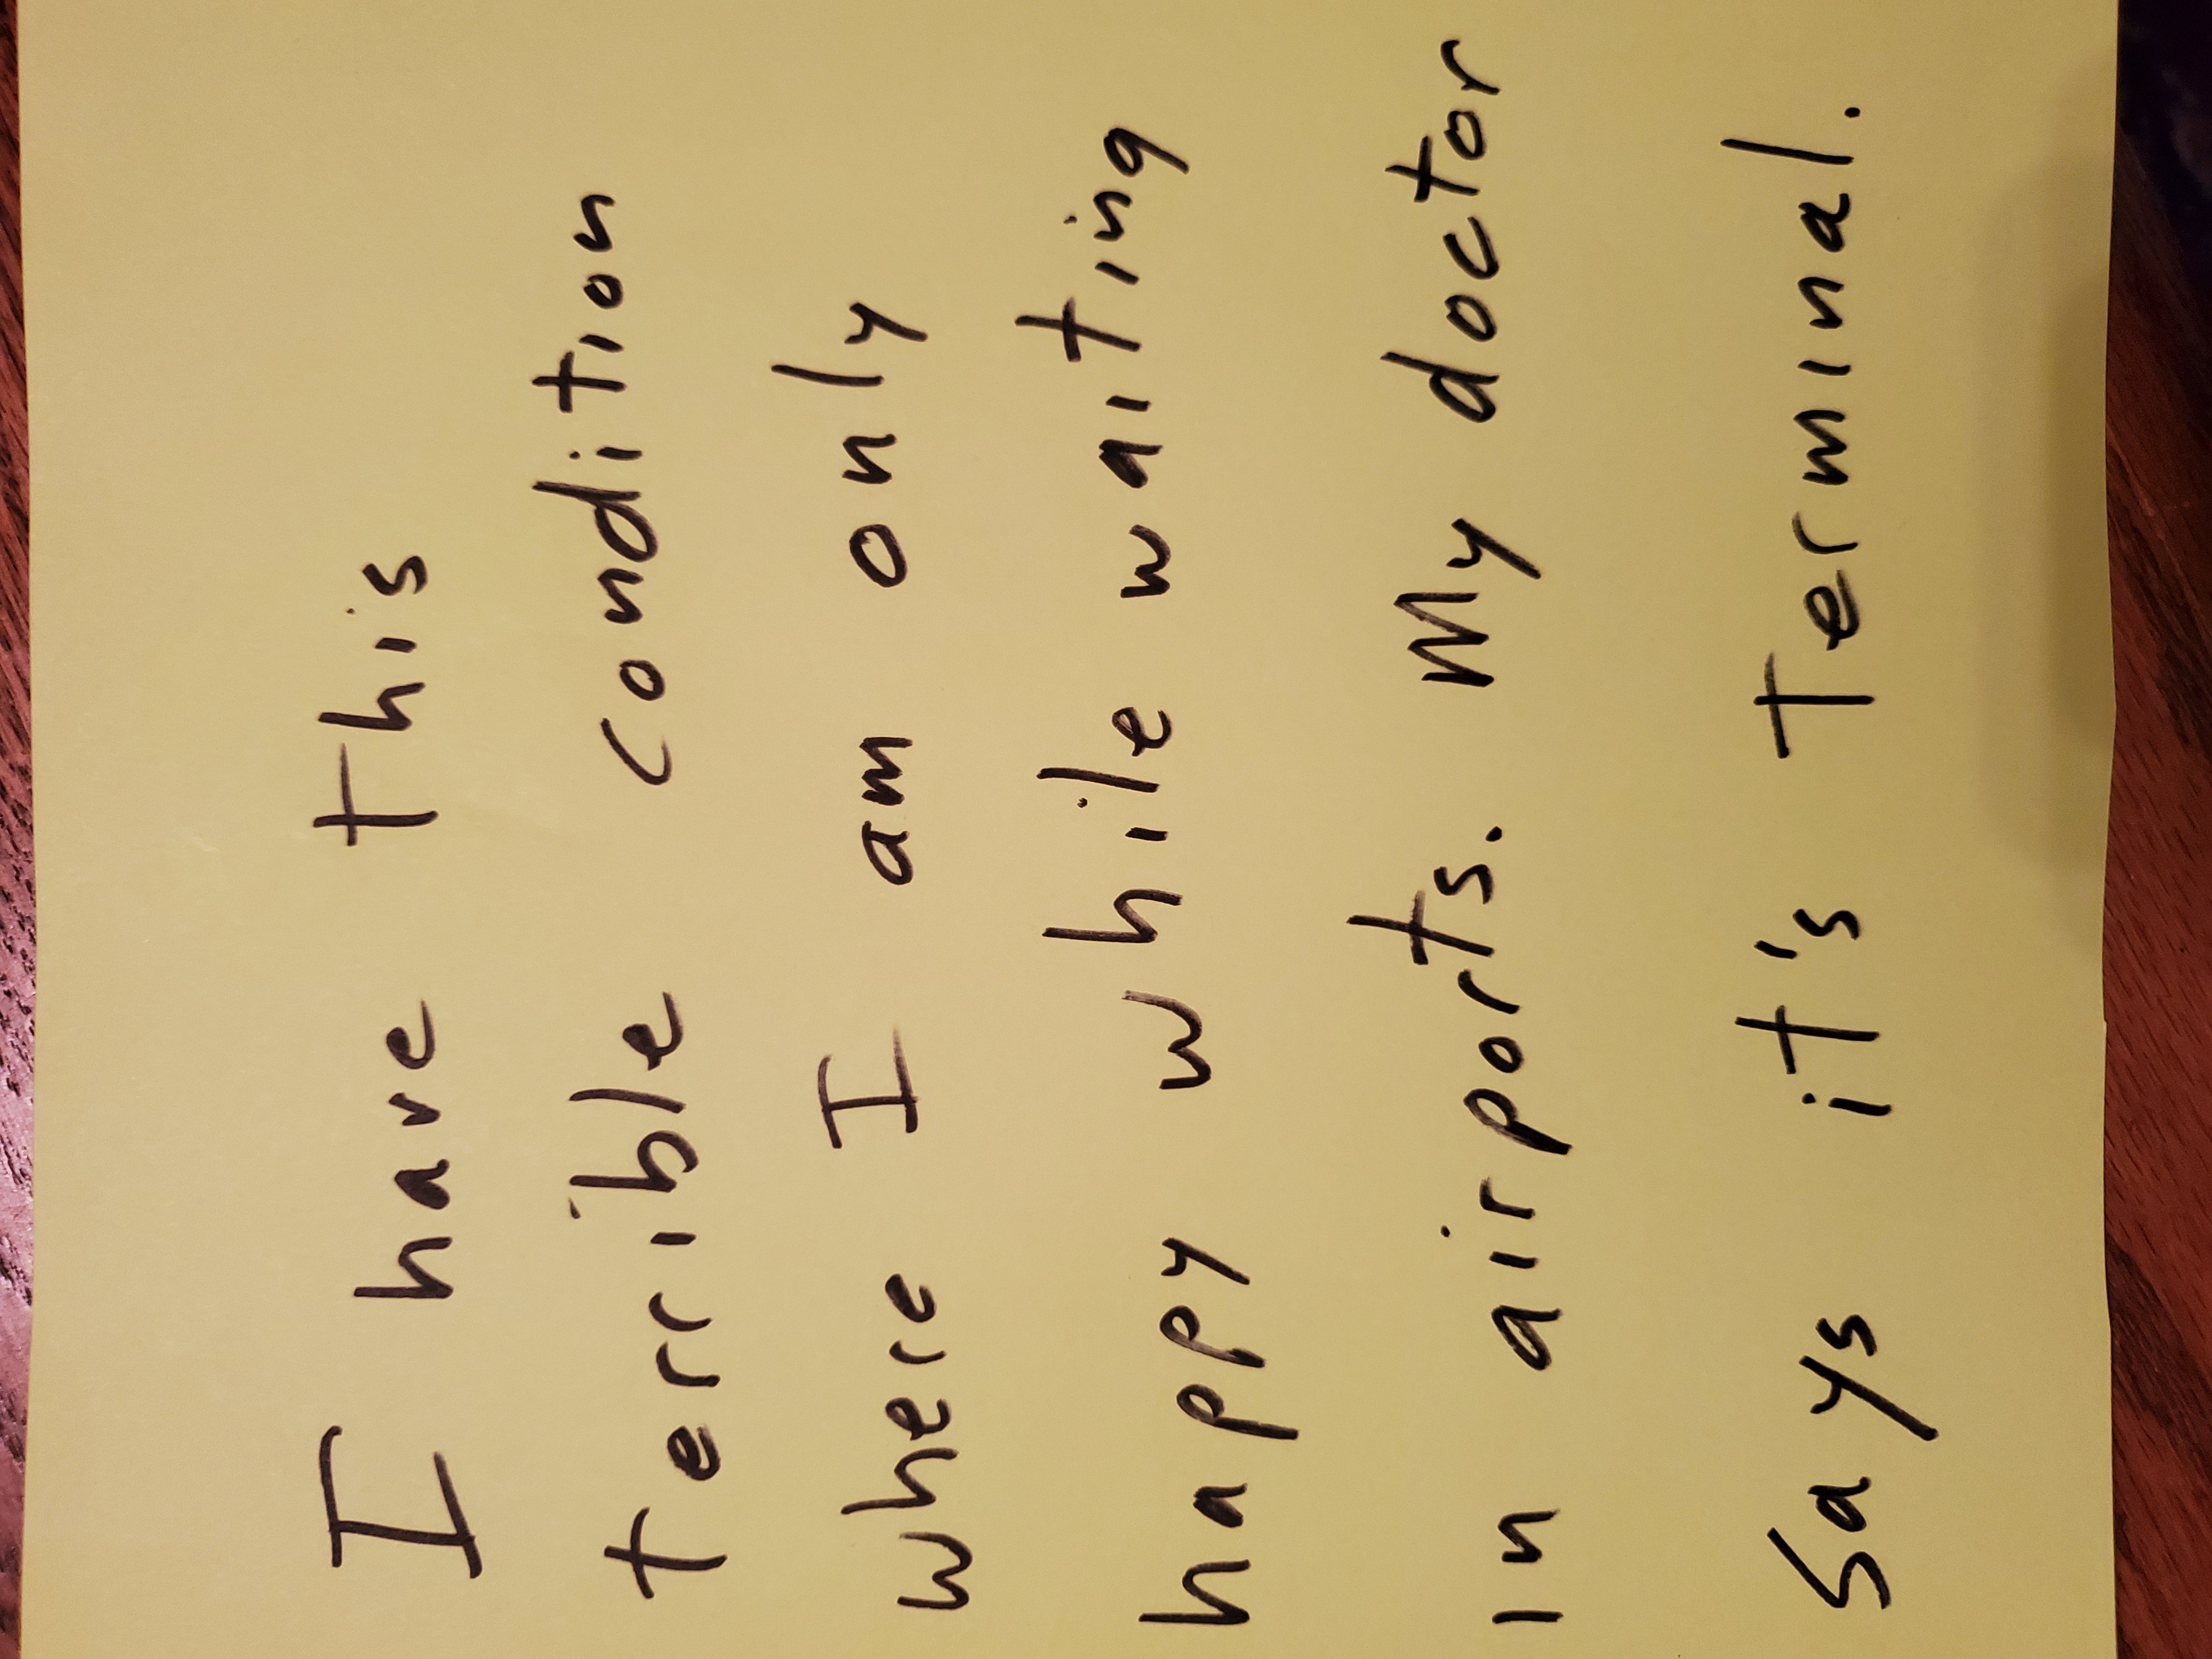 I have this
terrible condition
where I am only
happy while waiting
in airports. My doctor
says it's terminal.